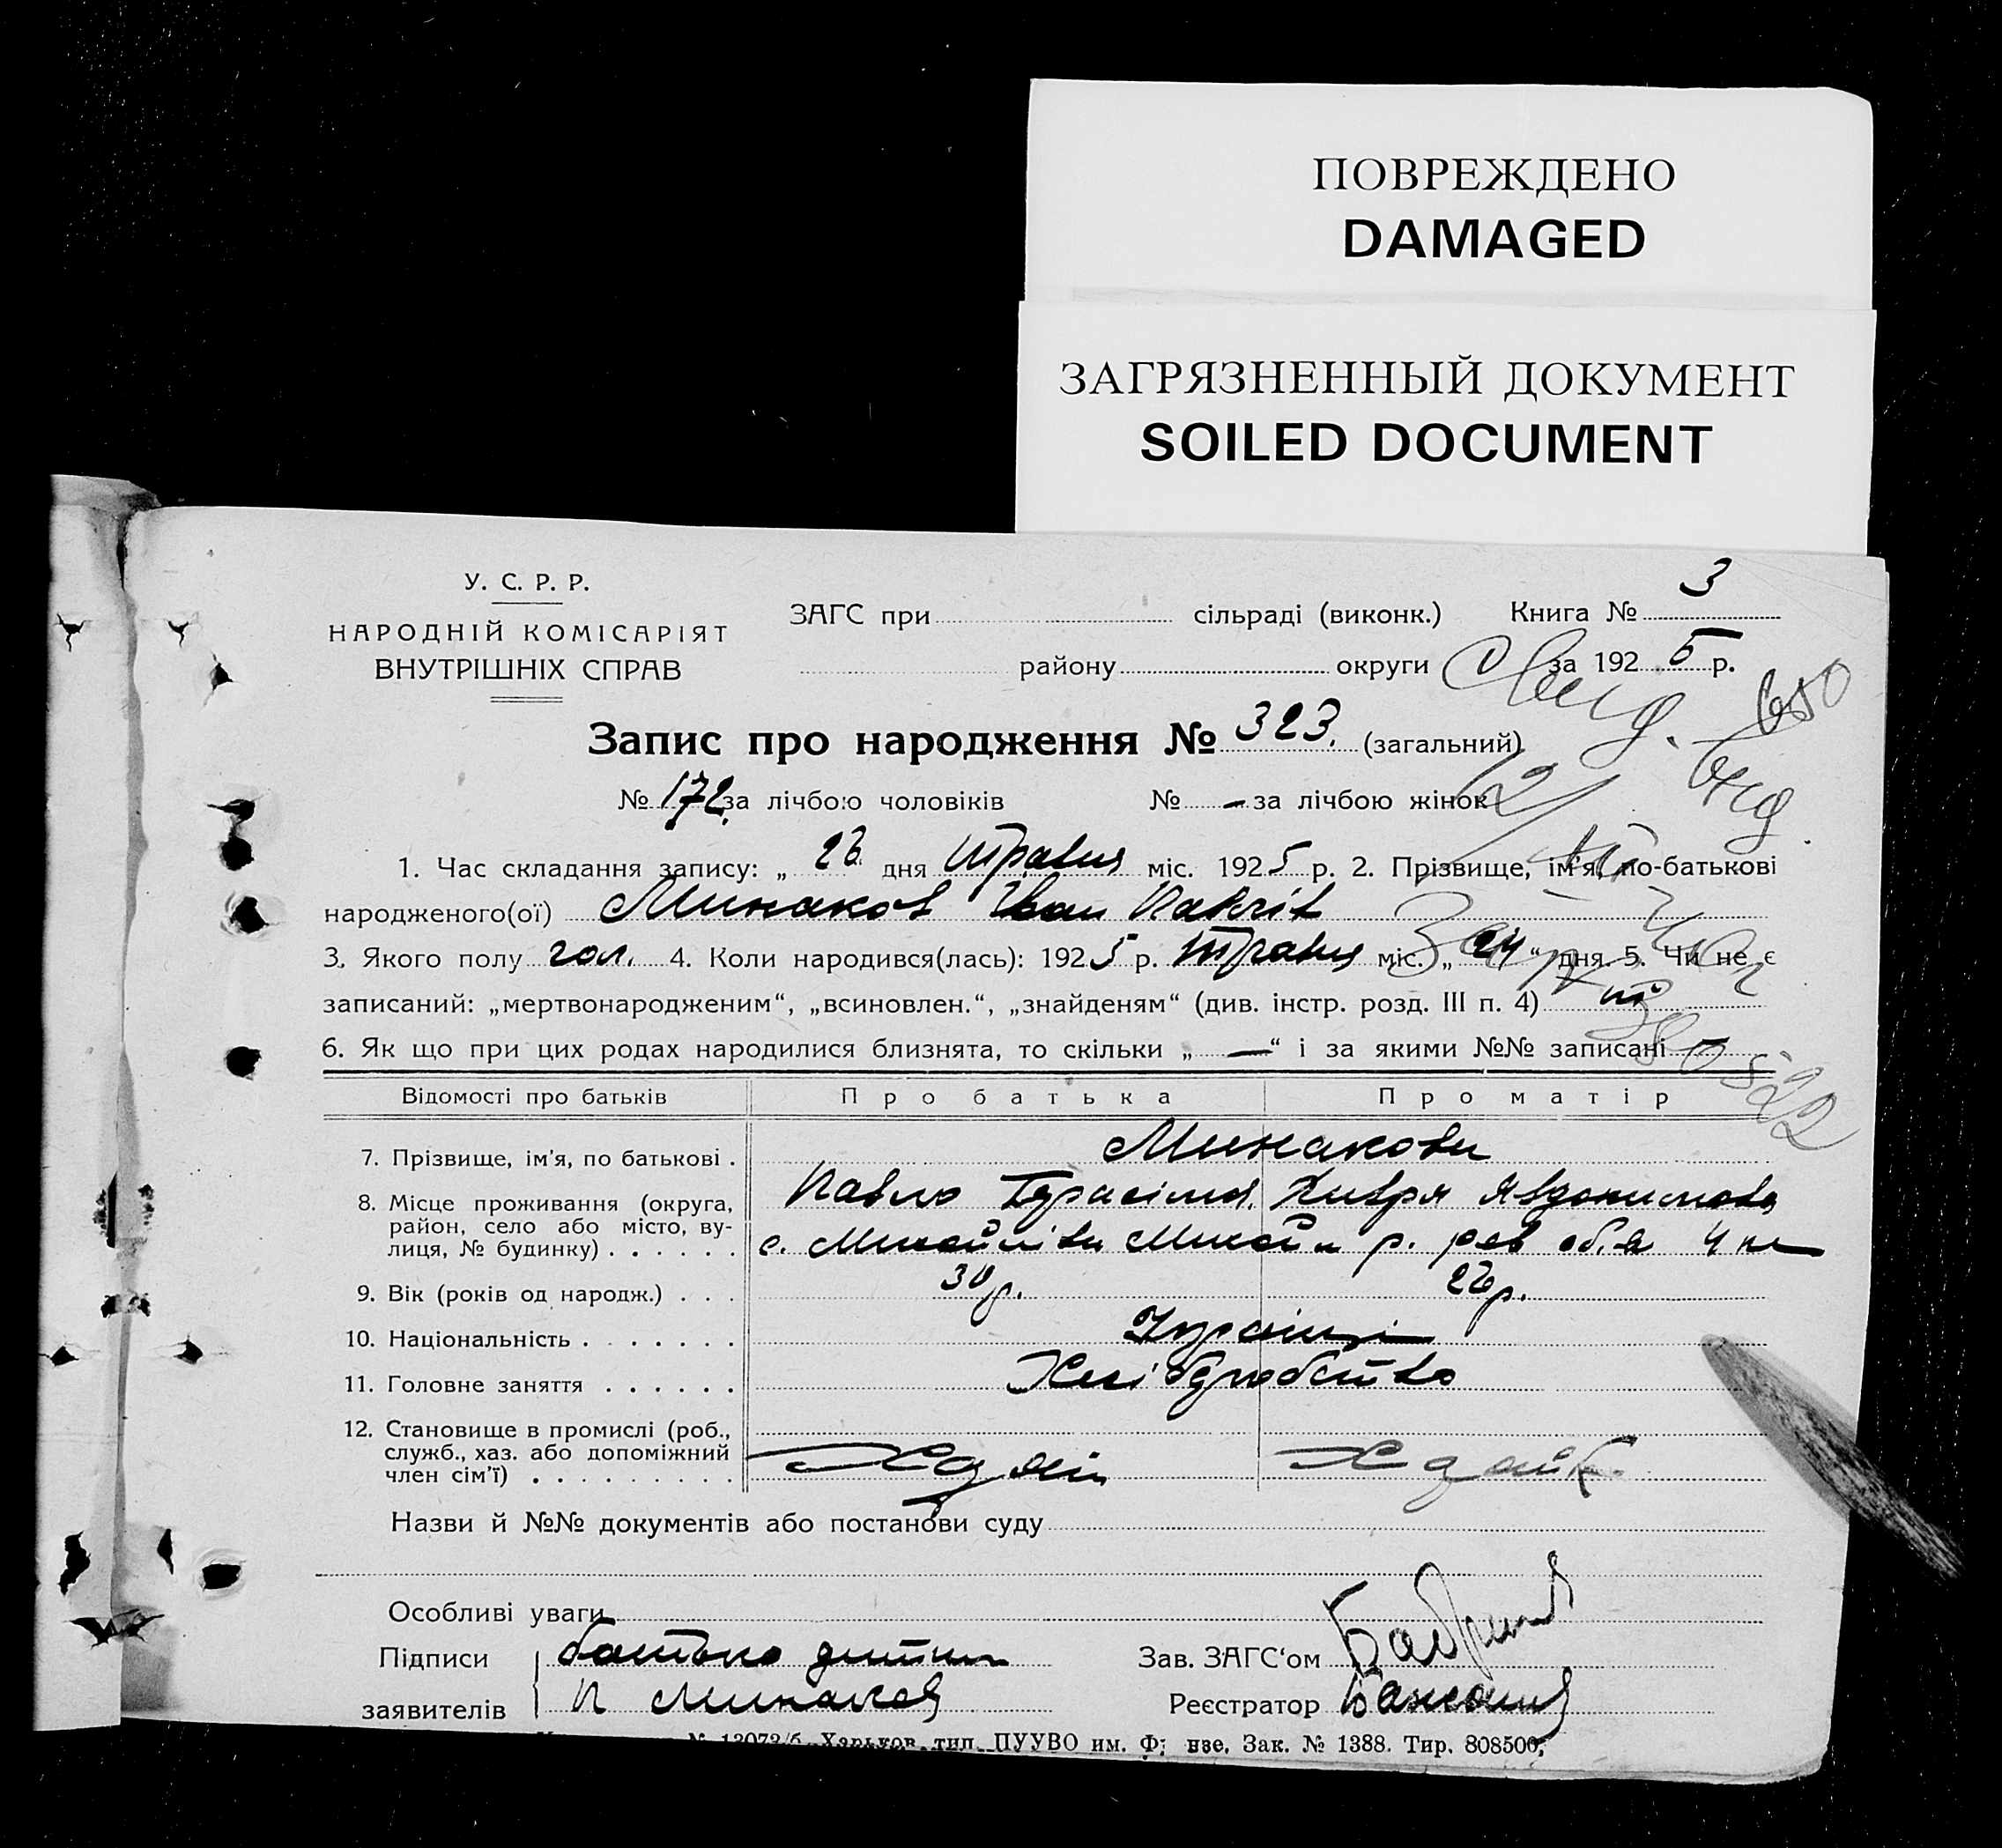 ПОВРЕЖДЕНО
DAMAGED
ЗАГРЯЗНЕННЫЙ ДОКУМЕНТ
SOILED DOCUMENT
У. С. Р. Р.
НАРОДНІЙ КОМІСАРІЯТ
ВНУТРІШНІХ СПРАВ
ЗАГС при сільраді (виконк.) Книга № 3
району округи за 1925 р.
Запис про народження № 323. (загальний)
№ 172. за лічбою чоловіків № — за лічбою жінок
1. Час складання запису: „ 26 дня травня міс. 1925 р. 2. Прізвище, ім'я, по-батькові
народженого(ої) Минаков Иван
3. Якого полу чол. 4. Коли народився(лась): 1925 р. травня міс. „ 24 “ дня. 5. Чи не є
записаний: „мертвонародженим“, „всиновлен.“, „знайденям“ (див. інстр. розд. III п. 4) ні
6. Як що при цих родах народилися близнята, то скільки „ — “ і за якими №№ записані —
Відомості про батьків Про батька Про матір
7. Прізвище, ім'я, по батькові . Минакови
Павло Явдокимова
8. Місце проживання (округа,
район, село або місто, ву-
лиця, № будинку) . . . . . . с. р.
9. Вік (років од народж.) . . . 30 р. 26 р.
10. Національність . . . . . . . Українці
11. Головне заняття . . . . . . Хлібробство
12. Становище в промислі (роб.,
служб., хаз. або допоміжний
член сім'ї) . . . . . . . . .
Назви й №№ документів або постанови суду
Особливі уваги
Підписи батько дитини Зав. ЗАГС'ом
заявителів П Минаков Реєстратор
№ 12073/б. Харьков, тип. ПУУВО им. Ф нзе. Зак. № 1388. Тир. 808500.